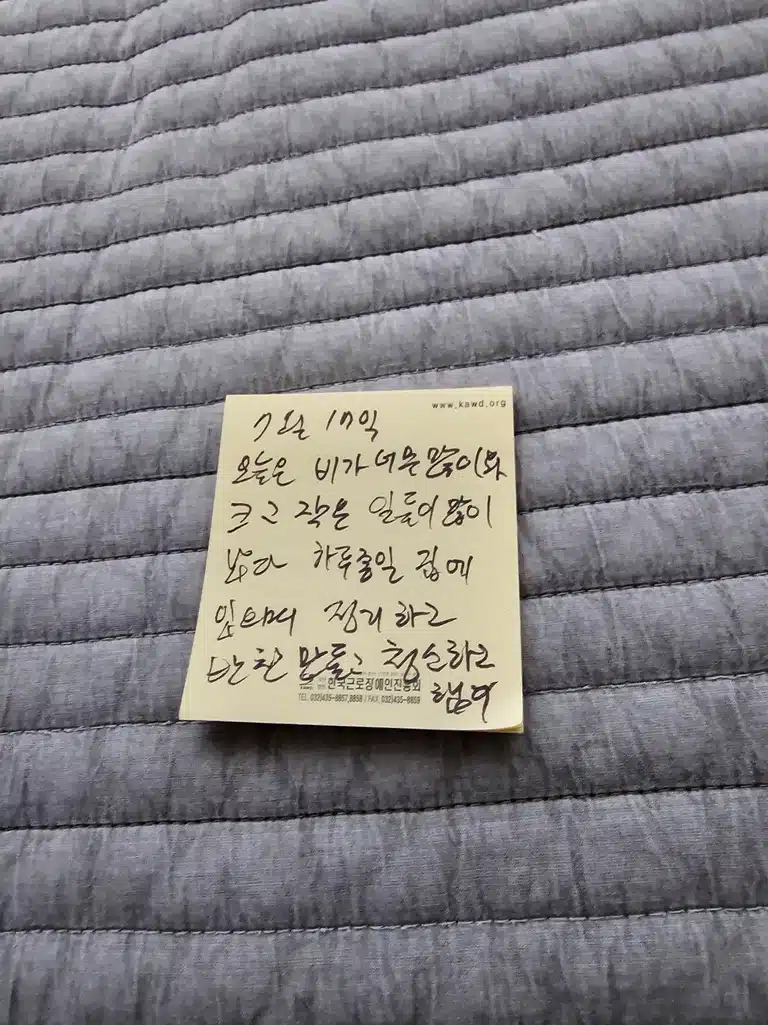 www.kawd.org
7월 17일
오늘은 비가 너무 많이와
크고 작은 일들이 많이
났다 하루종일 집에
있으며 정리하고
반찬 만들고 청소하고
한국근로장애인진흥회
했다
TEL. 032)435-8857,8858 / FAX. 032)435-8859